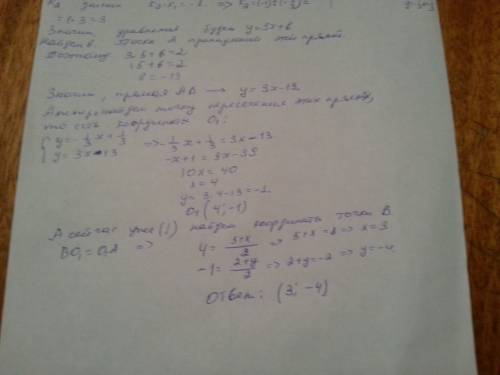 k₂ k₁ = -1 => k₂ = (-1) : (-1/3) =
= 1·3 = 3
Значит, уравнение будет y = 3x + b
Найдем b. Точка A принадлежит этой прямой.
Поэтому 3·5 + b = 2
15 + b = 2
b = -13
Значит, прямая AB → y = 3x - 13
найдем точку пересечения этих прямых,
то есть координаты O₁:
{ y = -1/3 x + 1/3 => -1/3 x + 1/3 = 3x - 13
{ y = 3x - 13
-x + 1 = 9x - 39
10x = 40
x = 4
y = 3·4 - 13 = -1
O₁ (4; -1)
А сейчас уже (!) найдем координаты точки B
BO₁ = O₁A => 4 = (5+x)/2 => 5 + x = 8 => x = 3
-1 = (2+y)/2 => 2 + y = -2 => y = -4
Ответ: (3; -4)